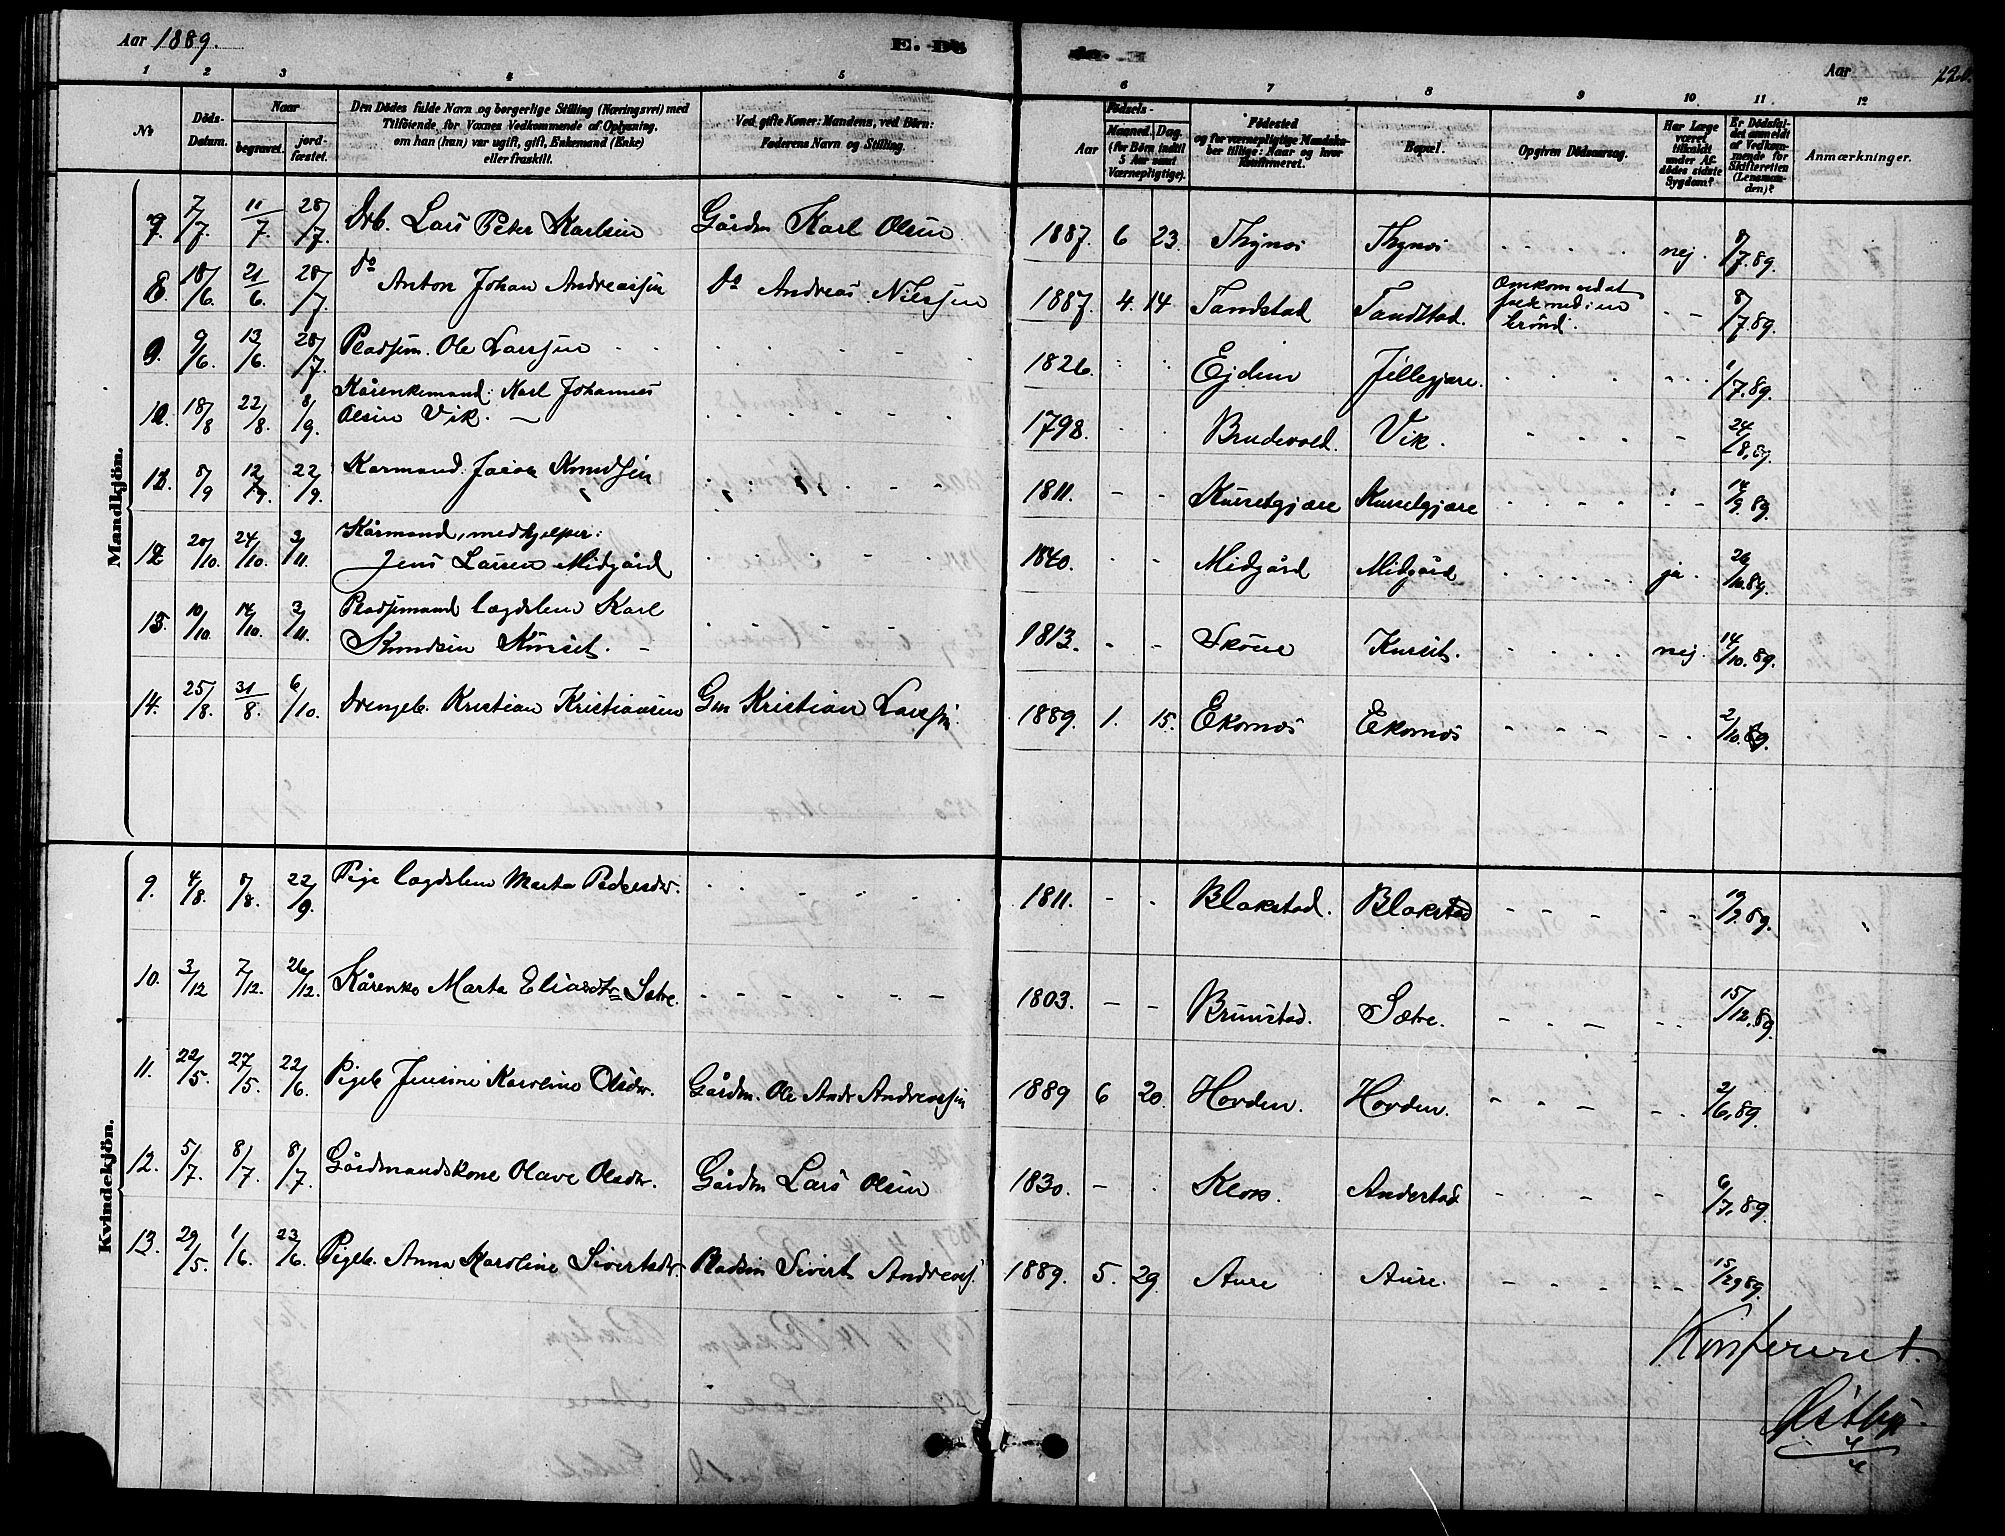 Aar 1889.
E. Dö
Aar
1 2 3 4 5 6 7 8 9 10 11 12
No
Döds-Datum.
Naar
begravet. jordfæstet.
Den Dödes fulde Navn og borgerlige Stilling (Næringsvei) med
Tilföiende, for Voxnes Vedkommende af Oplysning,
om han (hun) var ugift, gift, Enkemand (Enke)
eller fraskilt.
Ved gifte Koner: Mandens, ved Börn:
Faderens Navn og Stilling.
Födsels-
Aar
Maaned. Dag.
(for Börn indtil
5 Aar samt
Værnepligtige).
Födested
og for værnepligtige Mandska-
ber tillige: Naar og hvor
Konfirmeret.
Bopæl.
Opgiven Dödsaarsag.
Har Læge
været
tilkaldt
under Af-
dödes sidste
Sygdom?
Er Dödsfal-
det anmeldt
af Vedkom-
mende for
Skifteretten
(Lensman-
den)?
Anmærkninger.
Mandkjön.
7. 7/7. 11/7. 28/7. Drb. Lars Peter Karlsen Gårdm Karl Olsen 1887. 6 23. Thynæs Thynæs nej. 8/7.89.
8. 18/6 21/6. 28/7. Do Anton Johan Andreassen Do Andreas Nilssen 1887. 4. 14 Tandstad Tandstad. Omkom ved at
falde ned i en
brönd. 8/7.89.
9. 9/6. 13/6. 28/7. Pladsm. Ole Larssen 1826. Ejdem Jillegjære. 1/7.89.
10. 18/8 22/8. 8/9. Kårenkemand: Karl Johannes
Olsen Vik. 1798. Brudevold. Vik. 24/8.89.
11. 8/9 12/9. 22/9. Karmand. Jacob Knudsen 1811. Kursetgjære Kursetgjære 14/9.89.
12. 20/10. 24/10. 3/11. Kårmand, medhjelper:
Jens Larsen Midgård 1840. Midgård Midgård ja. 26/10.89.
13. 10/10. 14/10. 3/11. Pladsmand lægdslem Karl
Knudsen Kurset. 1813. Kurset. nej. 14/10.89.
14. 25/8. 31/8. 6/10. Drengb. Kristian Kristiansen Gm Kristian Larssen. 1889. 1. 15. Ekornæs Ekornæs 2/10.89.
Kvindekjön.
9. 4/8. 8/8. 22/9. Pige lægdslem Marta Pedersdtr. 1811. Blakstad. Blakstad
10. 3/12 7/12. 26/12. Kårenke Marta Eliasdtr Sætre. 1803. Brunstad. Sætre. 15/12.89.
11. 22/5. 27/5. 22/6. Pigeb. Jensine Karoline Olsdtr. Gårdm. Ole Andr Andreassen 1889 6 20. Hovden. Hovden. 2/6.89.
12. 5/7. 8/7. 8/7. Gårdmandskone Olave Olsdtr. Gårdm Lars Olsen 1830. Klok. Anderstad 6/7.89.
13. 29/5. 1/6. 23/6. Pigeb. Anna Karoline Sivertsdtr. Pladsm Sivert Andreass. 1889. 5. 29. Aure Aure.
Konfereret.
Østbye.